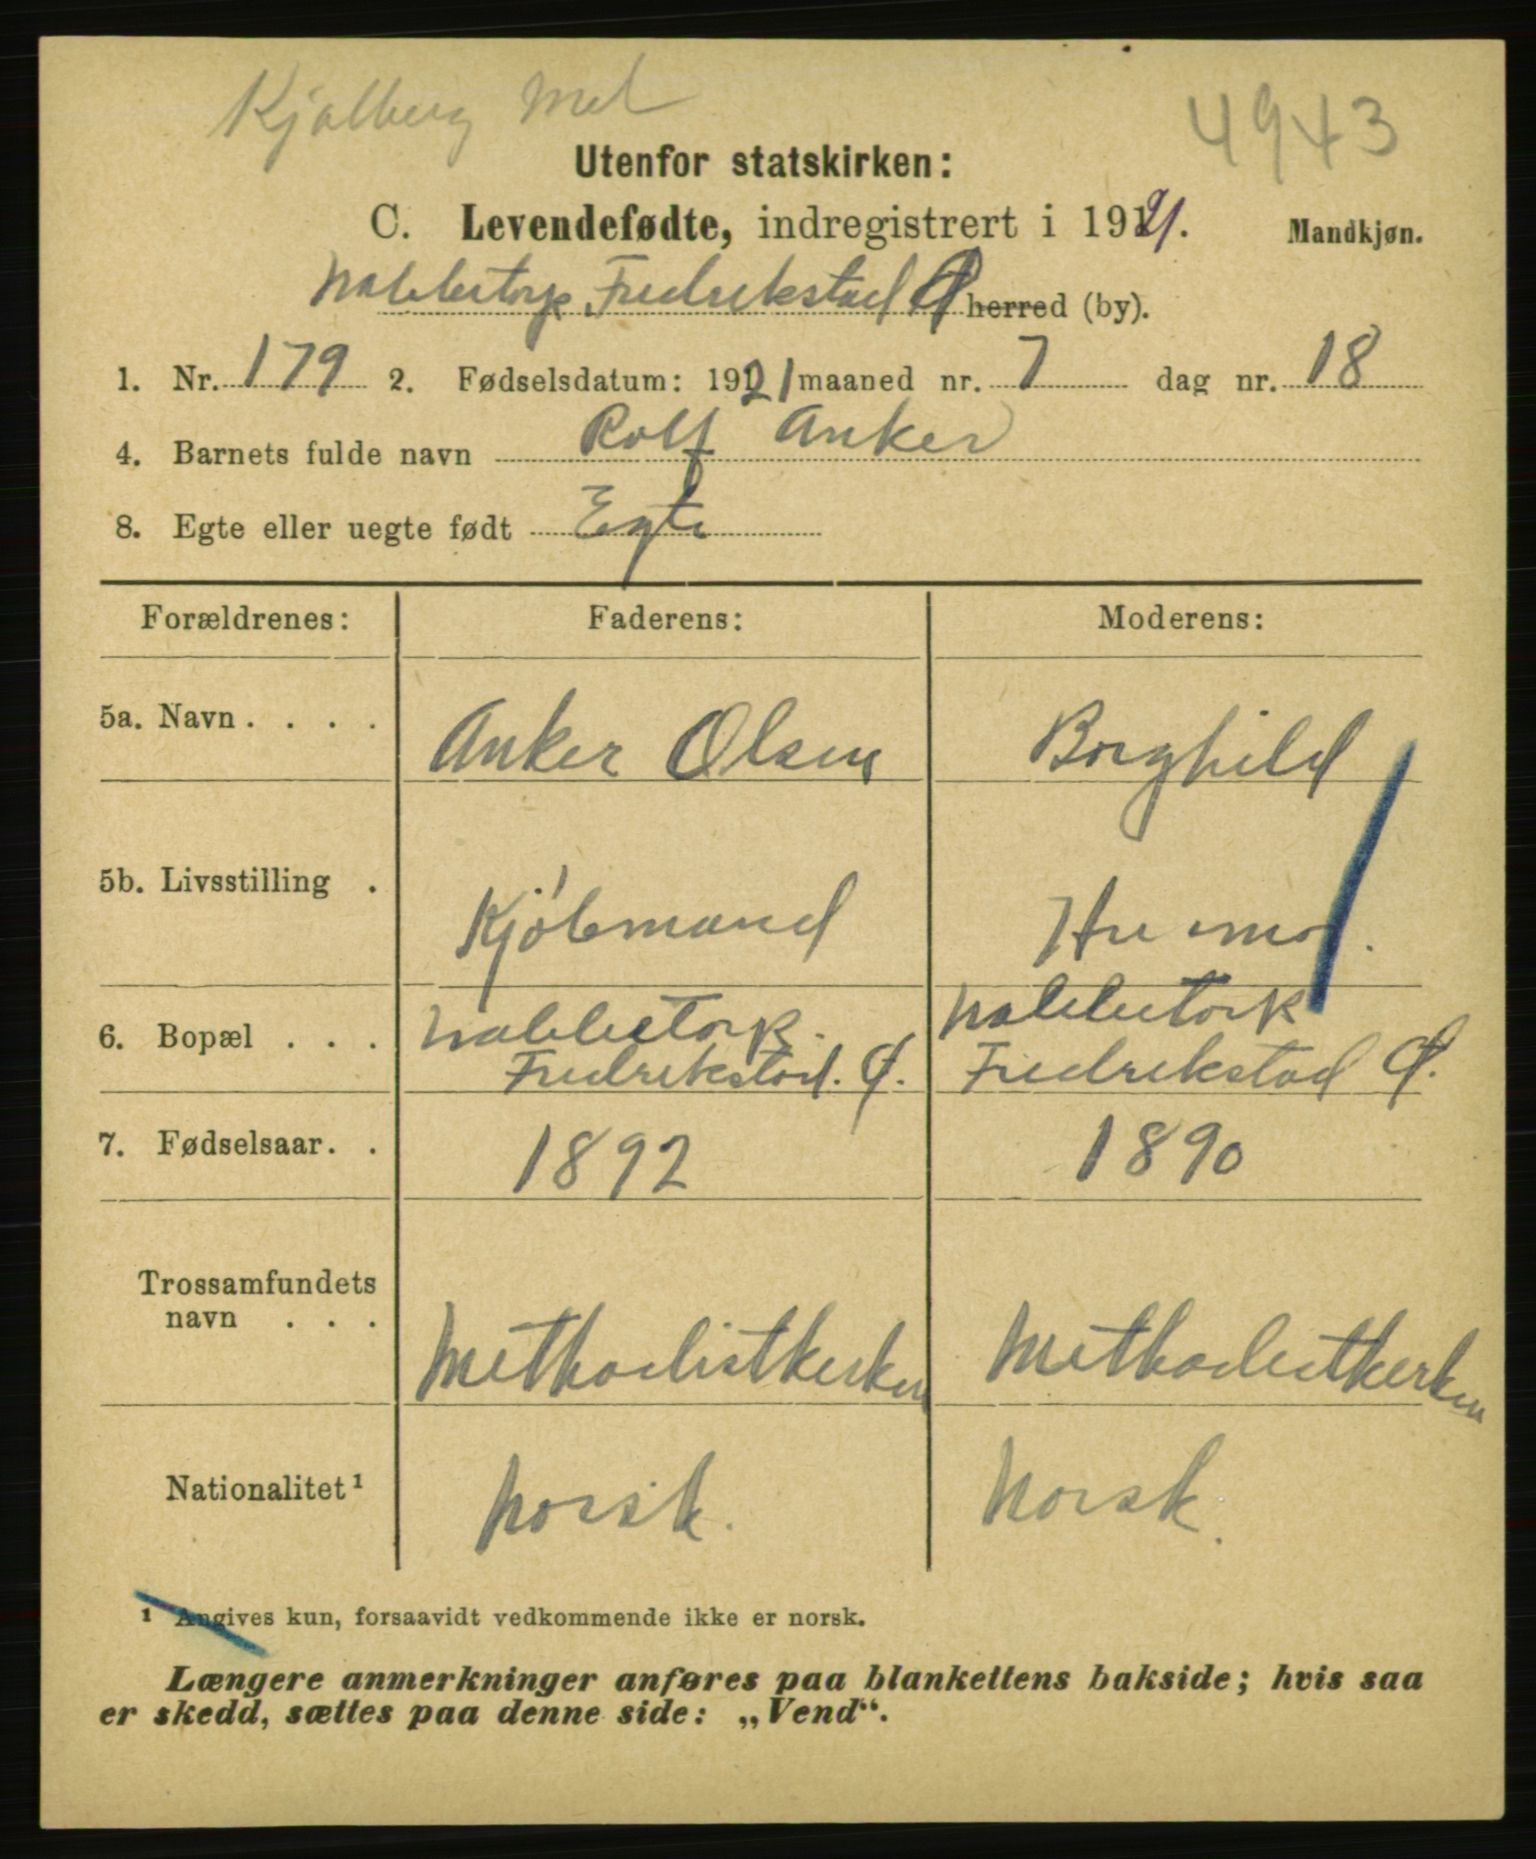 Kjølberg Met
4943
Utenfor statskirken:
C. Levendefødte, indregistrert i 1921. Mandkjøn.
Nabbetorp Fredrikstad Ø herred (by).
1. Nr. 179 2. Fødselsdatum: 1921 maaned nr. 7 dag nr. 18
4. Barnets fulde navn Rolf Anker
8. Egte eller uegte født Egte
Forældrenes: Faderens: Moderens:
5a. Navn . . . . Anker Olsen Borghild
5b. Livsstilling . Kjøbmand
6. Bopæl . . . Nabbetorp. Fredrikstad. Ø. Nabbetork Fredrikstad Ø.
7. Fødselsaar. . 1892 1890
Trossamfundets
navn . . . Methodistkirken Methodistkirken
Nationalitet¹ Norsk. Norsk.
¹ Angives kun, forsaavidt vedkommende ikke er norsk.
Længere anmerkninger anføres paa blankettens bakside; hvis saa
er skedd, sættes paa denne side: „Vend“.